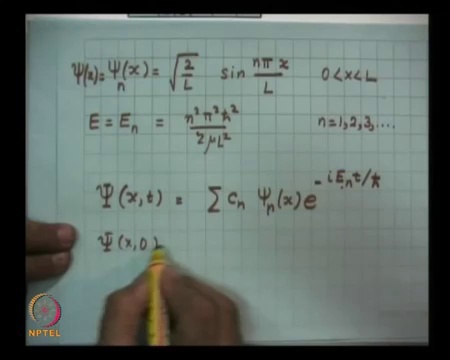 ψ(x) = ψ_n(x) = √(2/L) sin nπx/L 0 < x < L
E = E_n = n²π²ħ²/2μL² n = 1, 2, 3, ....
Ψ(x,t) = Σ c_n ψ_n(x) e^{-iE_n t/ħ}
Ψ(x,0)
NPTEL